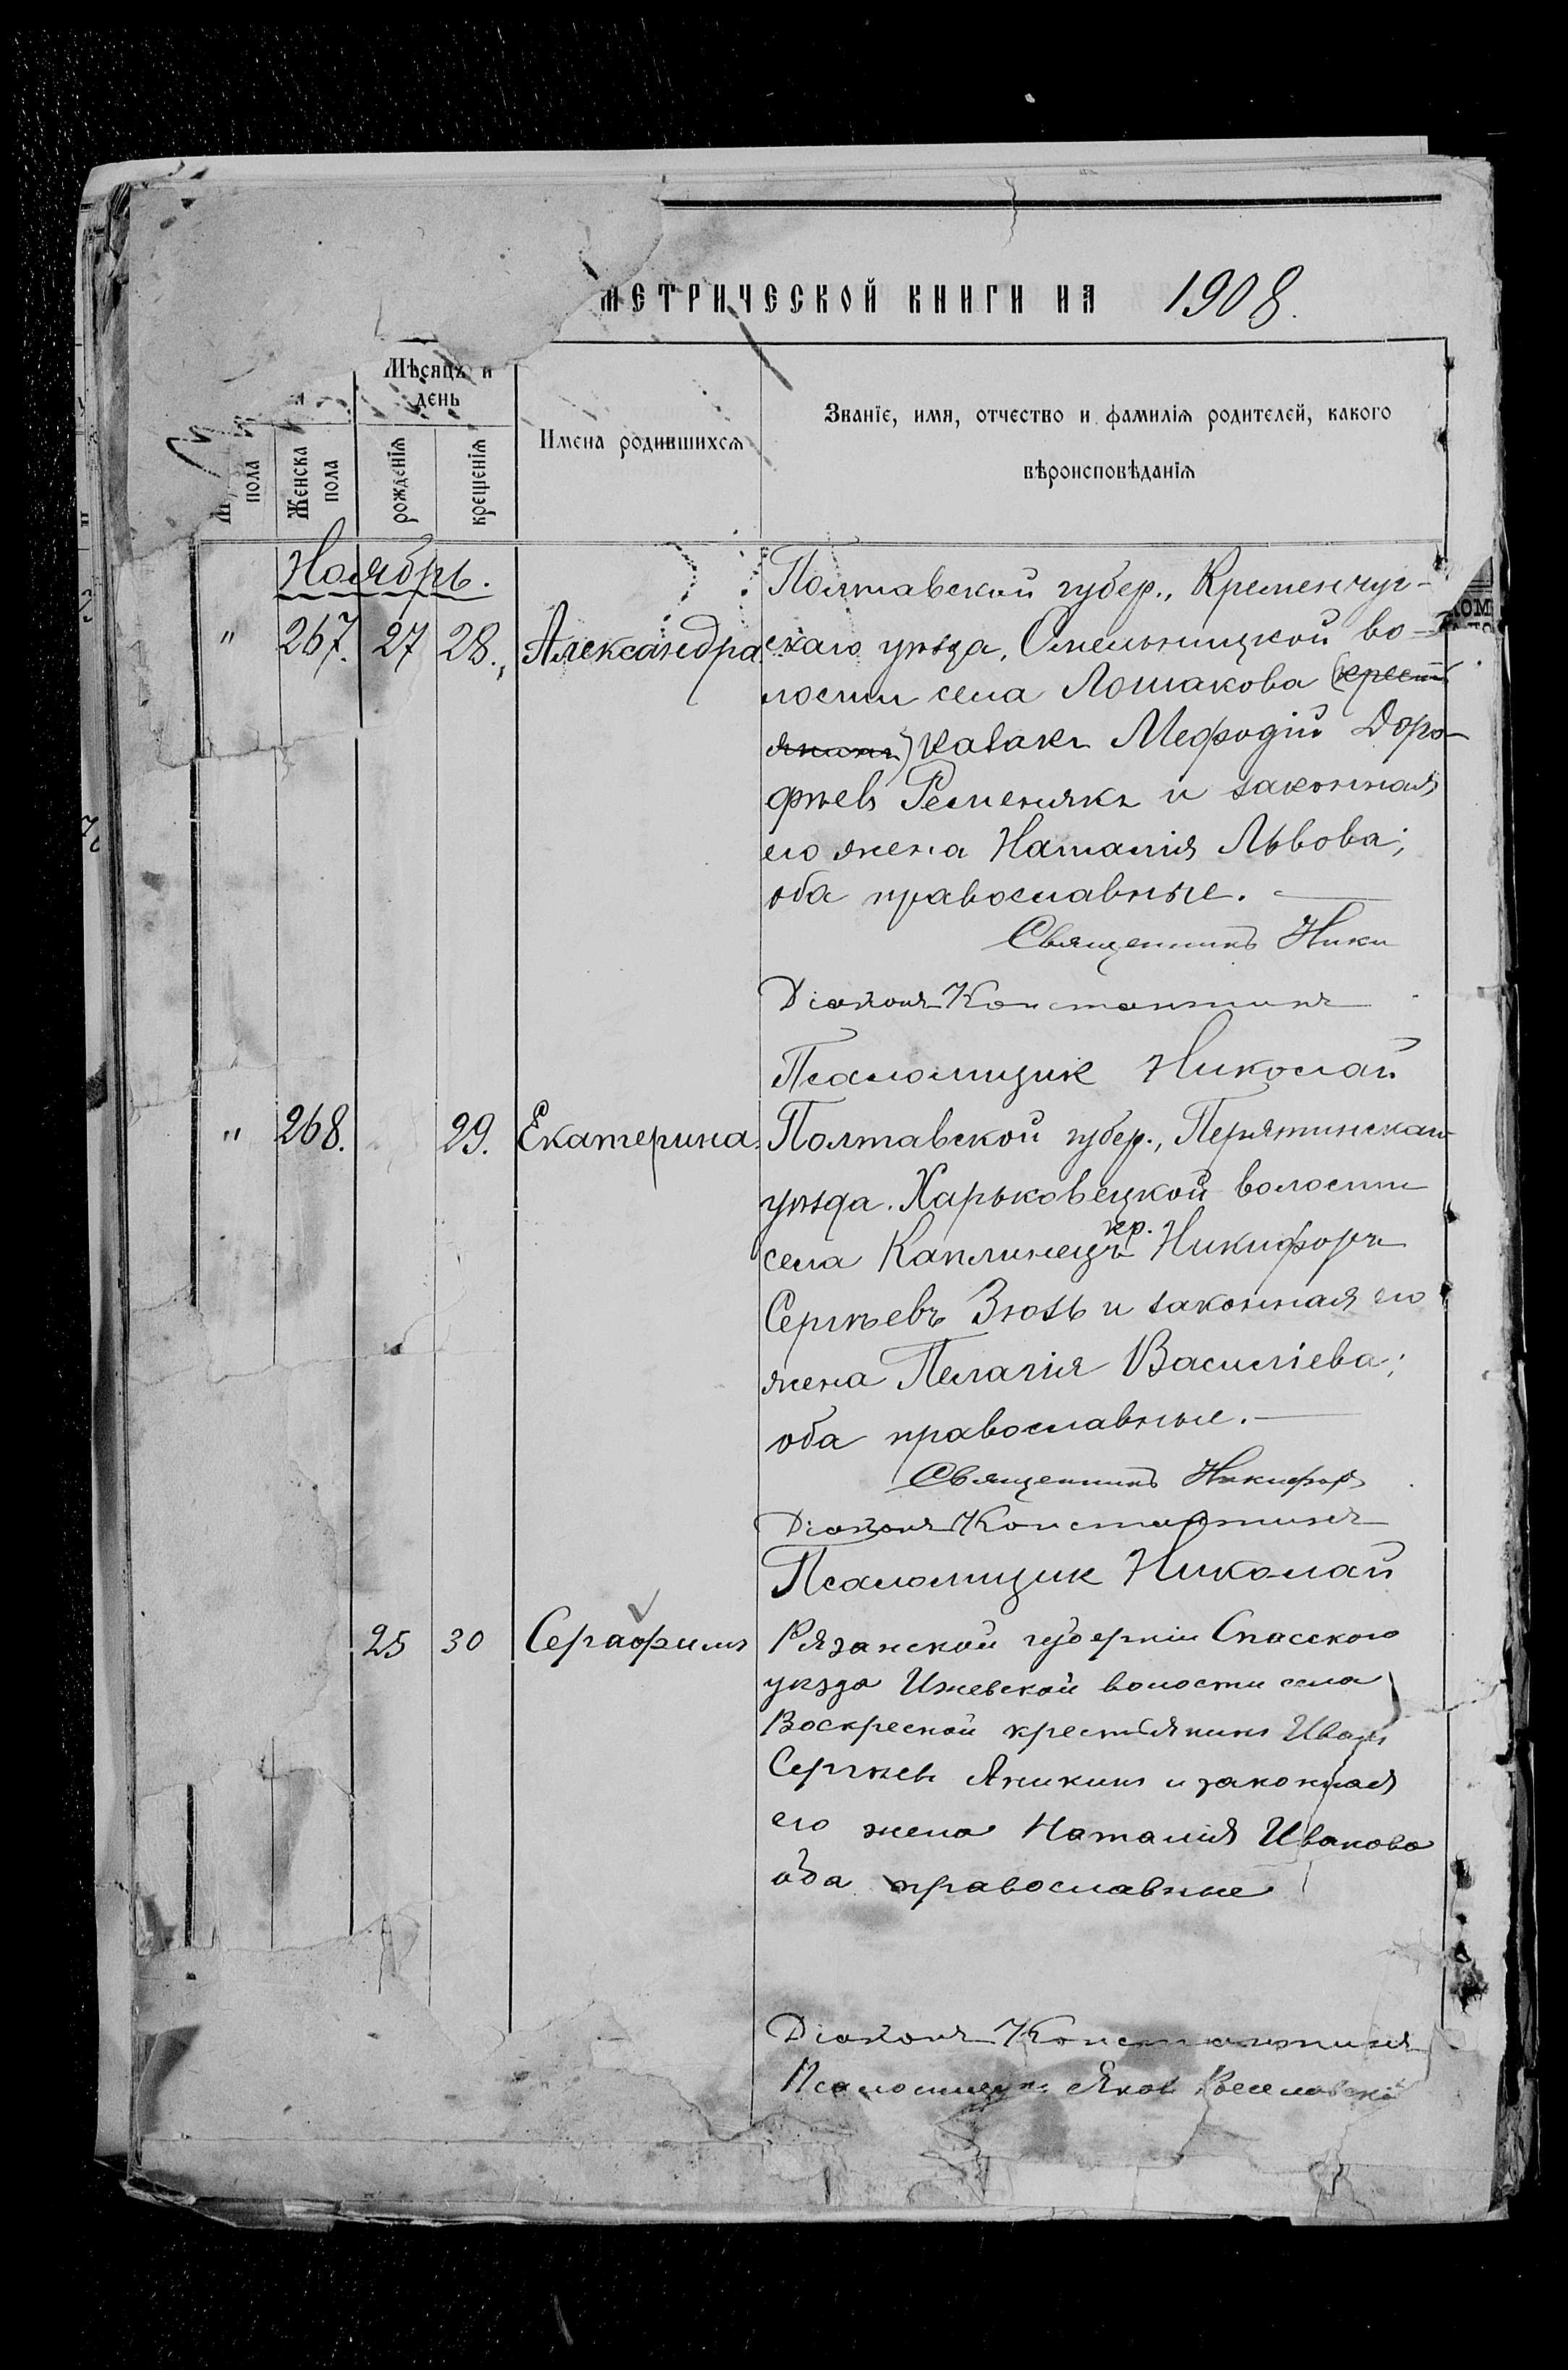 МЕТРИЧЕСКОЙ КНИГИ НА 1908.
Мѣсяцъ и
день
Имена родившихся
Званіе, имя, отчество и фамилія родителей, какого
вѣроисповѣданія
пола
Женска
пола
рожденія
крещенія
Ноябрь.
Полтавской губер., Кременчуг-
" 267. 27 28. Александра. скаго уѣзда, Омельницкой во-
лости села Лошакова (крестъ
янинъ) казакъ Мефодій Доро-
фѣевъ Ременякъ и законная
его жена Наталія Львова;
оба православные.
Священникъ Ники
Діаконъ Константинъ
Псаломщик Николай
" 268. 29. Екатерина. Полтавской губер., Пирятинскаго
уѣзда. Харьковецкой волости
села Каплинецъ кр. Никифоръ
Сергѣевъ Зюзь и законная его
жена Пелагія Василіева;
оба православные.
Священникъ Никифоръ
Діаконъ Константинъ
Псаломщик Николай
25 30 Серафимъ Рязанской губерніи Спасского
уѣзда Ижевской волости села
Воскресной крестьянинъ Иванъ
Сергѣевъ Аникинъ и законная
его жена Наталія Иванова
оба православные
Діаконъ Константинъ
Псаломщикъ Яков Веселовскій